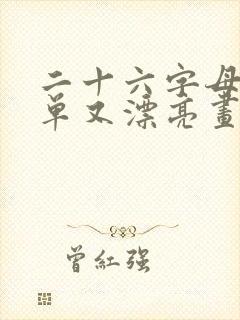 二十六字母
單又漂亮畫
曾紅强